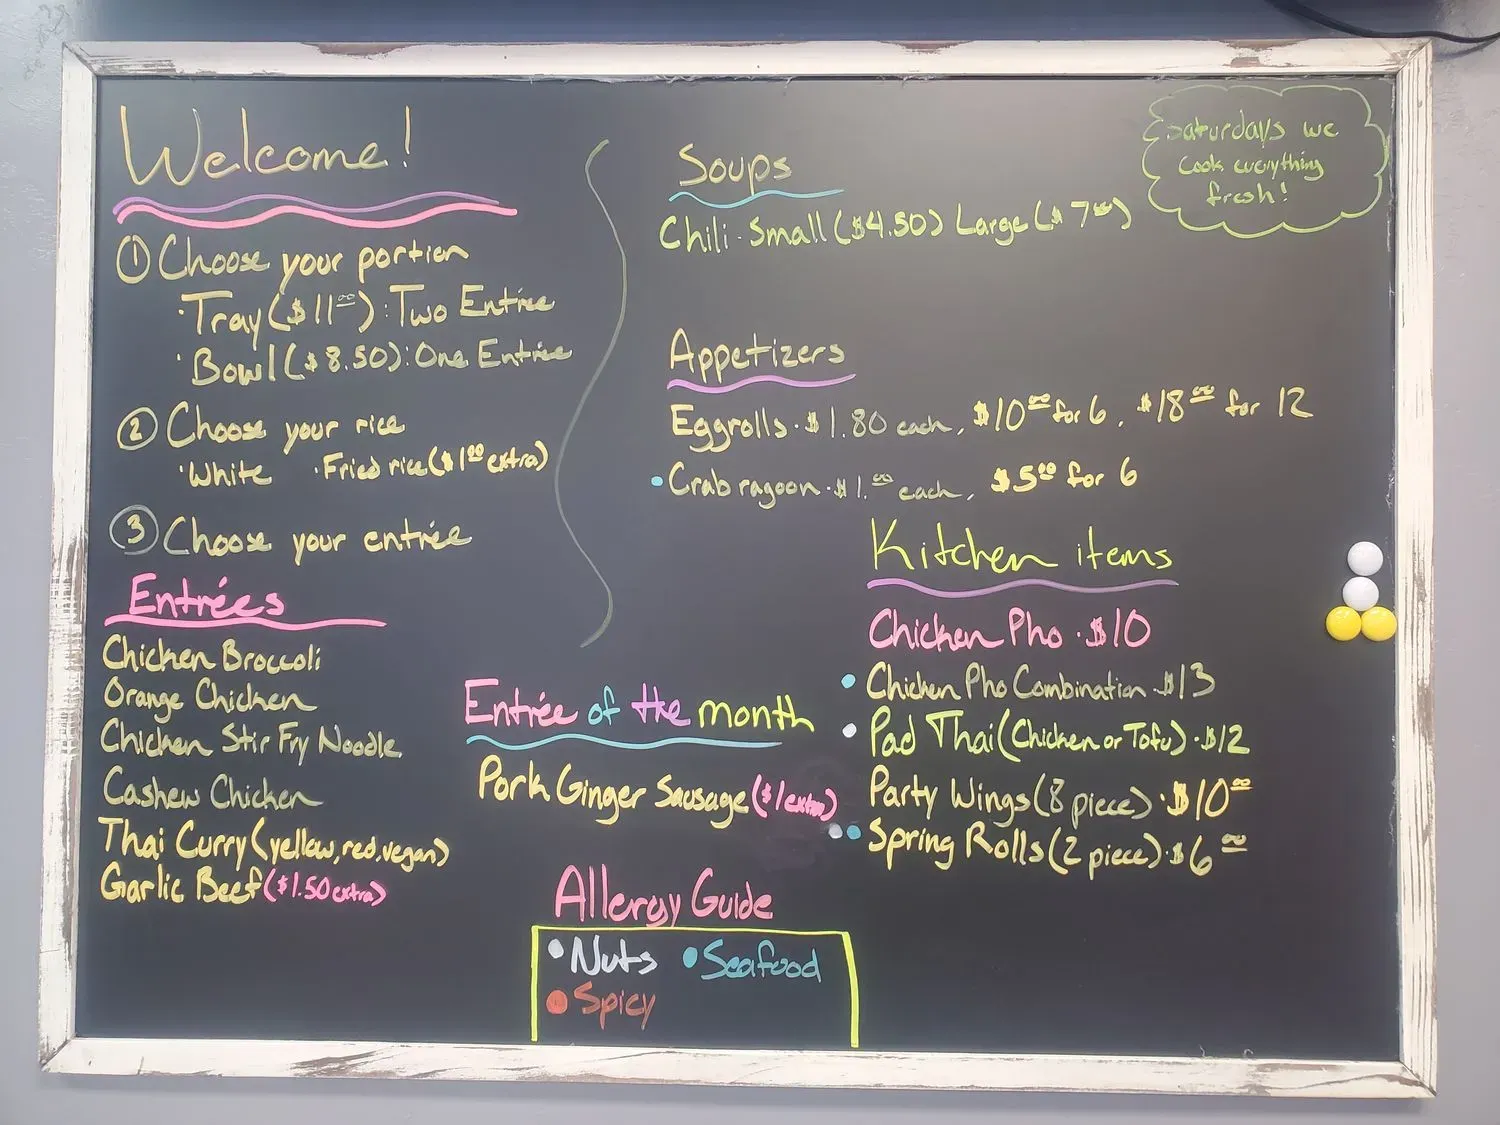 Welcome!
① Choose your portion
· Tray ($11.00): Two Entrée
· Bowl ($8.50): One Entrée
② Choose your rice
· White · Fried rice ($1.00 extra)
③ Choose your entrée
Entrées
Chicken Broccoli
Orange Chicken
Chicken Stir Fry Noodle
Cashew Chicken
Thai Curry (yellow, red, vegan)
Garlic Beef ($1.50 extra)
Entrée of the month
Pork Ginger Sausage ($1 extra)
Allergy Guide
• Nuts • Seafood
• Spicy
Soups
Chili · Small ($4.50) Large ($7.00)
Saturdays we
cook everything
fresh!
Appetizers
Eggrolls · $1.80 each, $10.00 for 6, $18.00 for 12
• Crab ragoon · $1.00 each, $5.00 for 6
Kitchen items
Chicken Pho · $10
• Chicken Pho Combination · $13
• Pad Thai (Chicken or Tofu) · $12
Party Wings (8 piece) · $10.00
•• Spring Rolls (2 piece) · $6.00